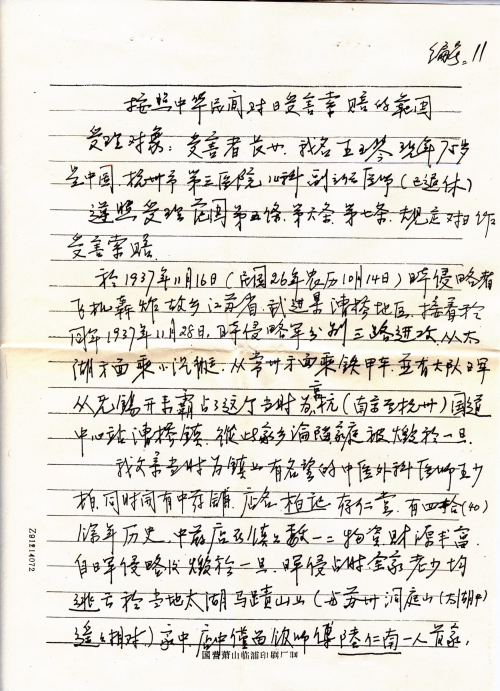 编号: 11
按照中华民间对日受害索赔的范围
受理对象: 受害者长女. 我名王 琴 现年75岁
是中国 杭州市第三医院 儿科 副主任医师 (已退休)
遵照受理范围第五条. 第六条. 第七条. 规定对日作
受害索赔.
於1937年11月16日 (民国26年农历10月14日) 日军侵略者
飞机轰炸故乡江苏省. 武进县漕桥地区, 接着於
同年1937年11月28日. 日军侵略军分别三路进攻. 从太
湖方面乘小汽艇. 从常州方面乘铁甲车. 並有大队日军
从无锡开来霸占了这个当时为京杭 (南京至杭州) 国道
中心站漕桥镇. 從此家乡淪陷家庭被燬於一旦.
我父亲当时为镇上有名望的中医外科医师王少
同时开有中药铺. 店名 存仁堂. 有四十拾 (40)
馀年历史. 中药店在镇上数一二 物资财源丰富.
自日军侵略后燬於一旦. 日军侵占时全家老少均
逃亡於当地太湖马蹟山上 (与苏州洞庭山 (太湖中)
遥遥相对) 家中. 店中僅留饭师傅陸仁南一人看家,
国营萧山临浦印刷厂制
Z91214072